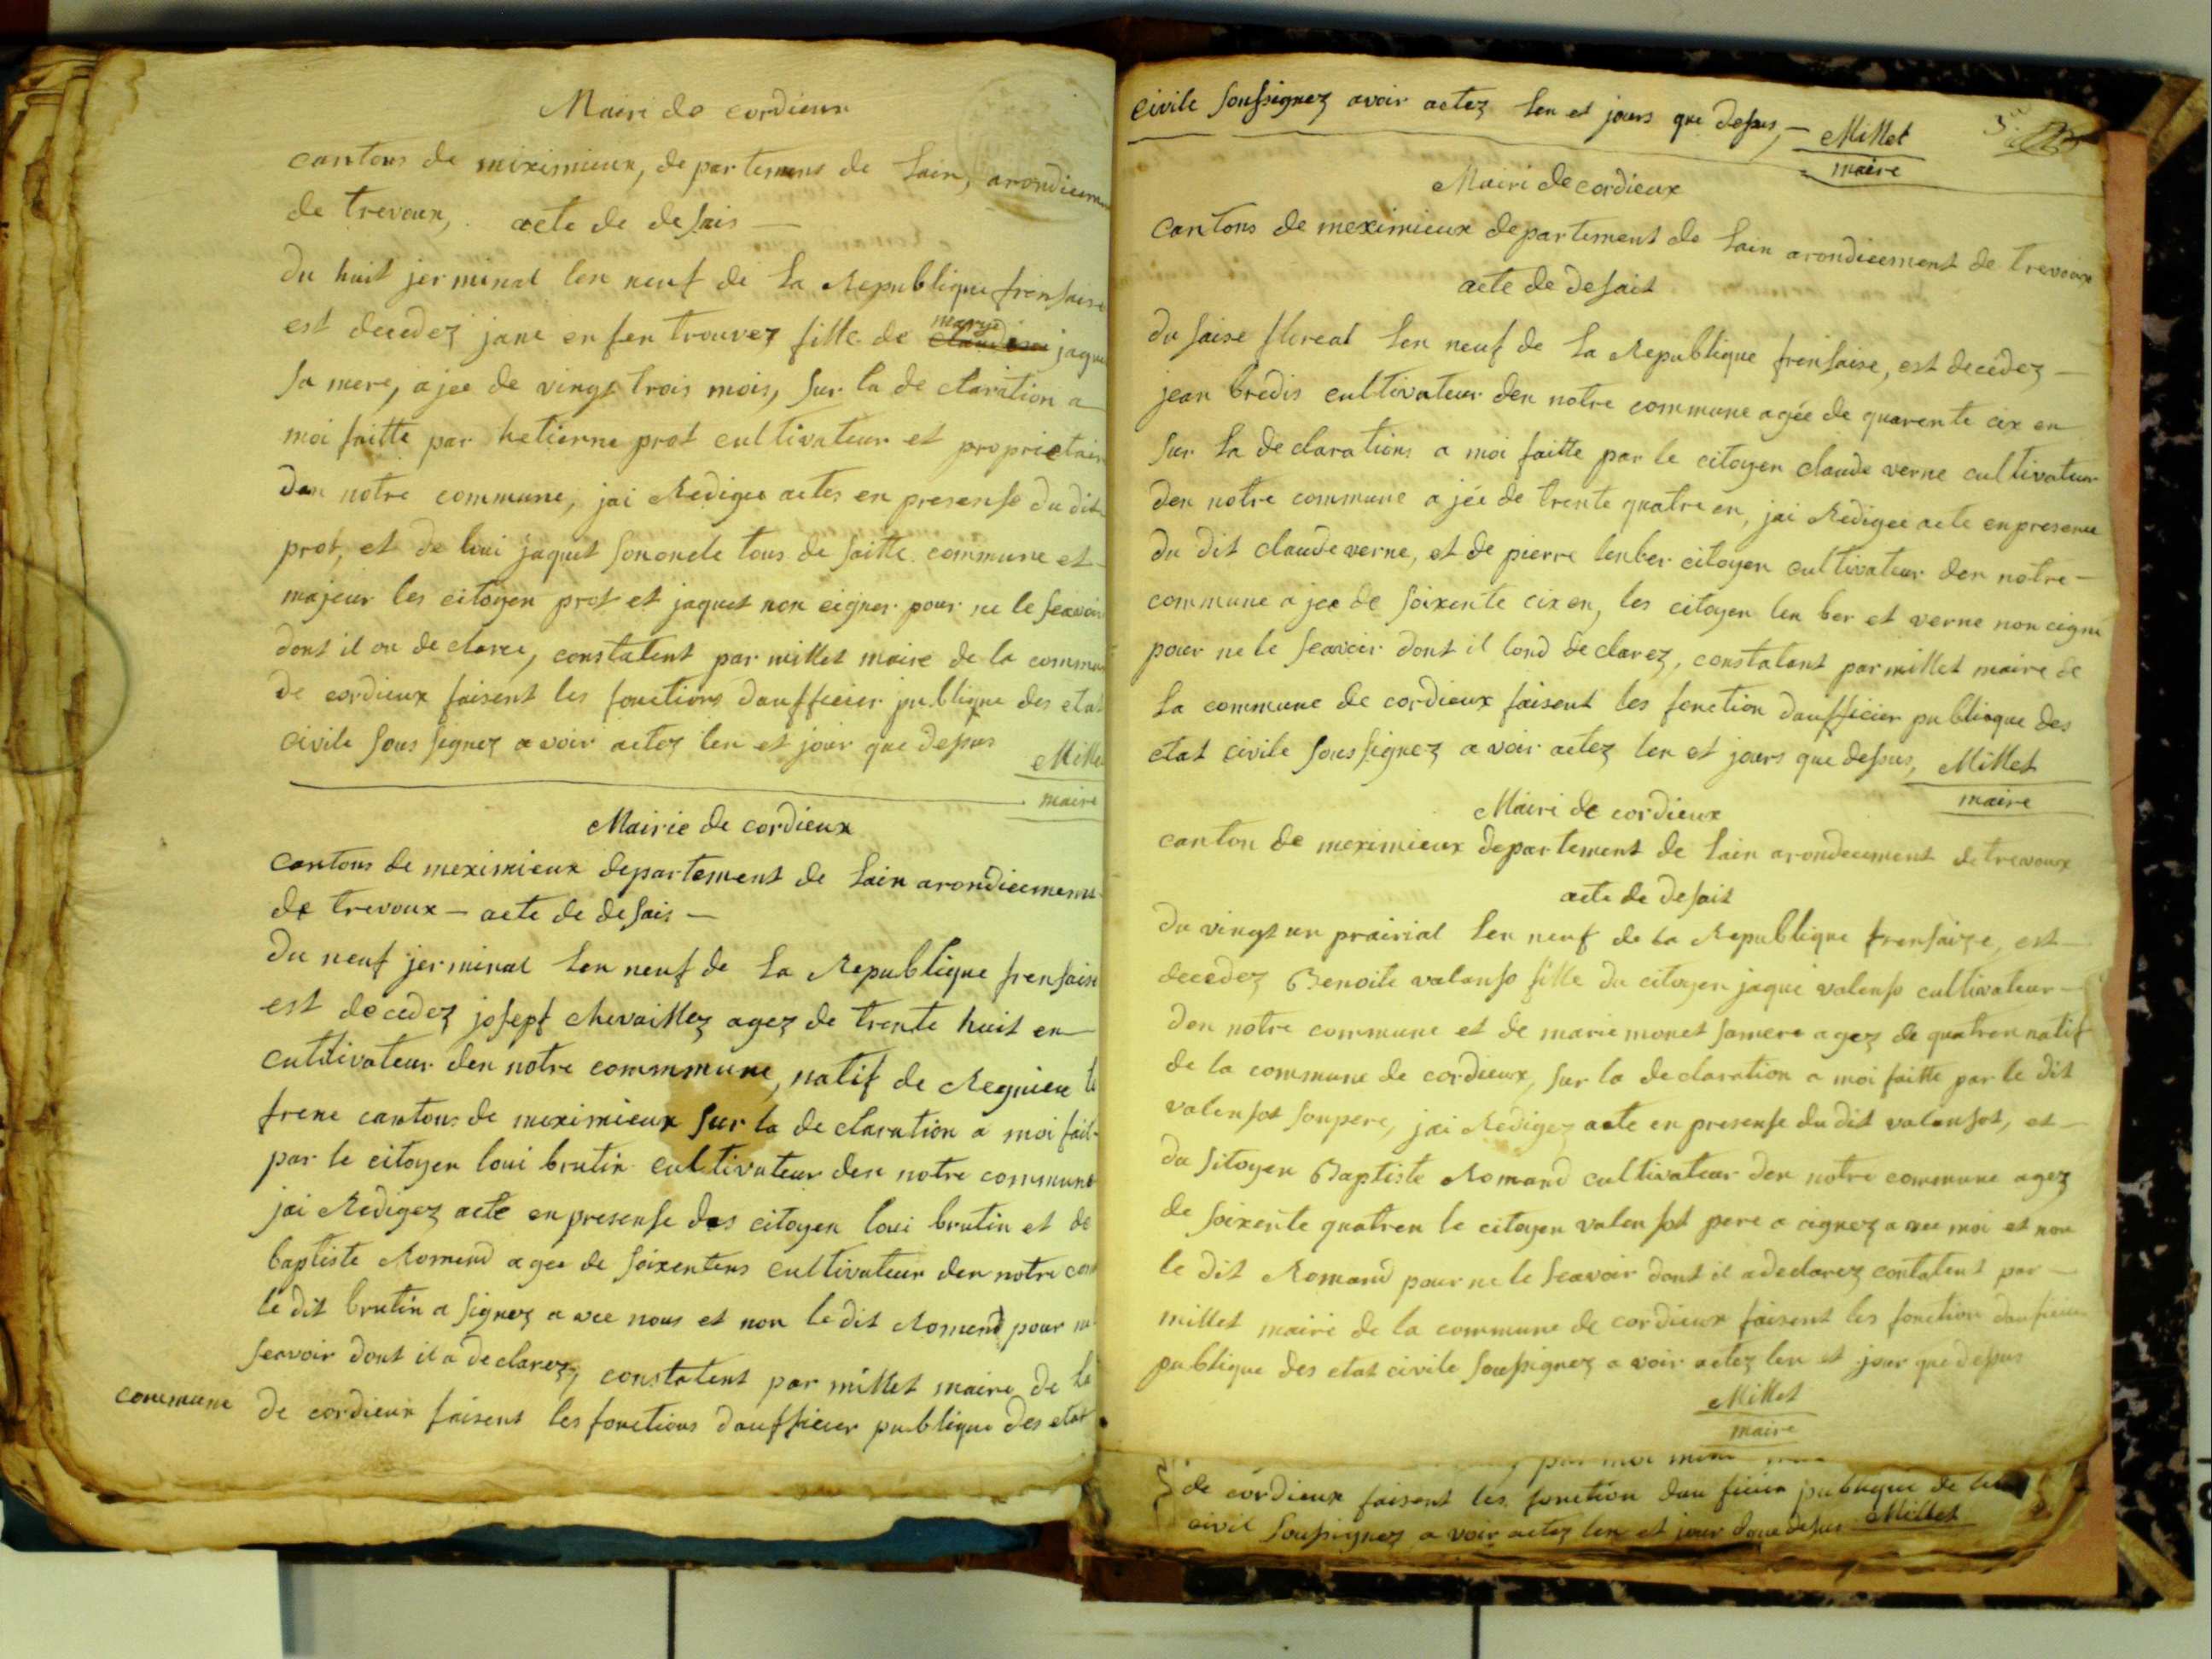 Mairi de cordieux
cantons de miximieux, de partemens de Lain, arondicem
de trevoux, acte de desais —
Du huit jerminal len neuf de La Republique frensaise
est decedez jane enfen trouvez fille de marye jaque
sa mere, ajee de vingt trois mois, sur la de claration a
moi faitte par hetienne prot cultivateur et proprietair
den notre commune, jai Redigee actes en presense du dit
prot, et de loui jaquet sononcle tous de saitte commune et
majeur les citoyen prot et jaquet non cigner pour ne le seavoir
dont il on de claree, constatent par millet maire de la commu
de cordieux faisent les fonctions daufficier publique des etat
civile sous signez avoir actez len et jour que dessus Mille
maire
Mairie de cordieux
cantons de meximieux departement de Lain arondicement
de trevoux — acte de desais —
Du neuf jerminal Len neuf de La Republique frensaise
est decedez josept chevaillez agez de trente huit en
cultivateur den notre commmune, natif de Regnieu le
frene cantons de meximieux sur la de claration a moi fait
par le citoyen loui brutin cultivateur den notre commune
jai Redigez acte en presense des citoyen loui brutin et de
baptiste Romend agee de soixentens cultivateur den notre com
le dit brutin a signez avec nous et non le dit Romend pour ne
seavoir dont il a declarez, constatent par millet maire de la
commune de cordieux faisent les fonctions daufficier publique des etat
civile soussignez avoir actez Len et jours que dessus, — Millet
maire
Mairi de cordieux
cantons de meximieux departement de Lain arondicement de trevoux
acte de desait
Du saise floreal Len neuf de La Republique frensaise, est decedez —
jean bredis cultivateur den notre commune agée de quarente cix en
sur La declarations a moi faitte par le citoyen claude verne cultivateur
den notre commune ajée de trente quatre en, jai Redigee acte en presence
du dit claude verne, et de pierre lenber citoyen cultivateur den notre —
commune ajee de soixente cix en, les citoyen len ber et verne non cigné
pour ne le seavoir dont il lond declarez, constatant par millet maire de
La commune de cordieux faisent les fonction daufficier publique des
etat civile soussignez avoir actez len et jours que dessus, Millet
maire
Mairi de cordieux
canton de meximieux departement de Lain arondecement de trevoux
acte de desait
Du vingt un prairial Len neuf de La Republique frensaize, est —
decedez Benoite valanso fille du citoyen jaque valenso cultivateur —
den notre commune et de marie monet samere agez de quatren natif
de la commune de cordieux, sur la declaration a moi faitte par le dit
valensot sonpere, jai Redigez acte en presense du dit valensot, et —
du sitoyen Baptiste Romand cultivateur den notre commune agez
de soixente quatren le citoyen valensot pere a cignez avec moi et non
le dit Romand pour ne le seavoir dont il a declarez contatent par —
millet maire de la commune de cordieux faisent les fonction daufficier
publique des etat civile soussignez avoir actez len et jour que dessus
Millet
maire
par moi
de cordieux faisent les fonction dau ficier publique de
civil soussignez avoir actez len et jour que desus Millet